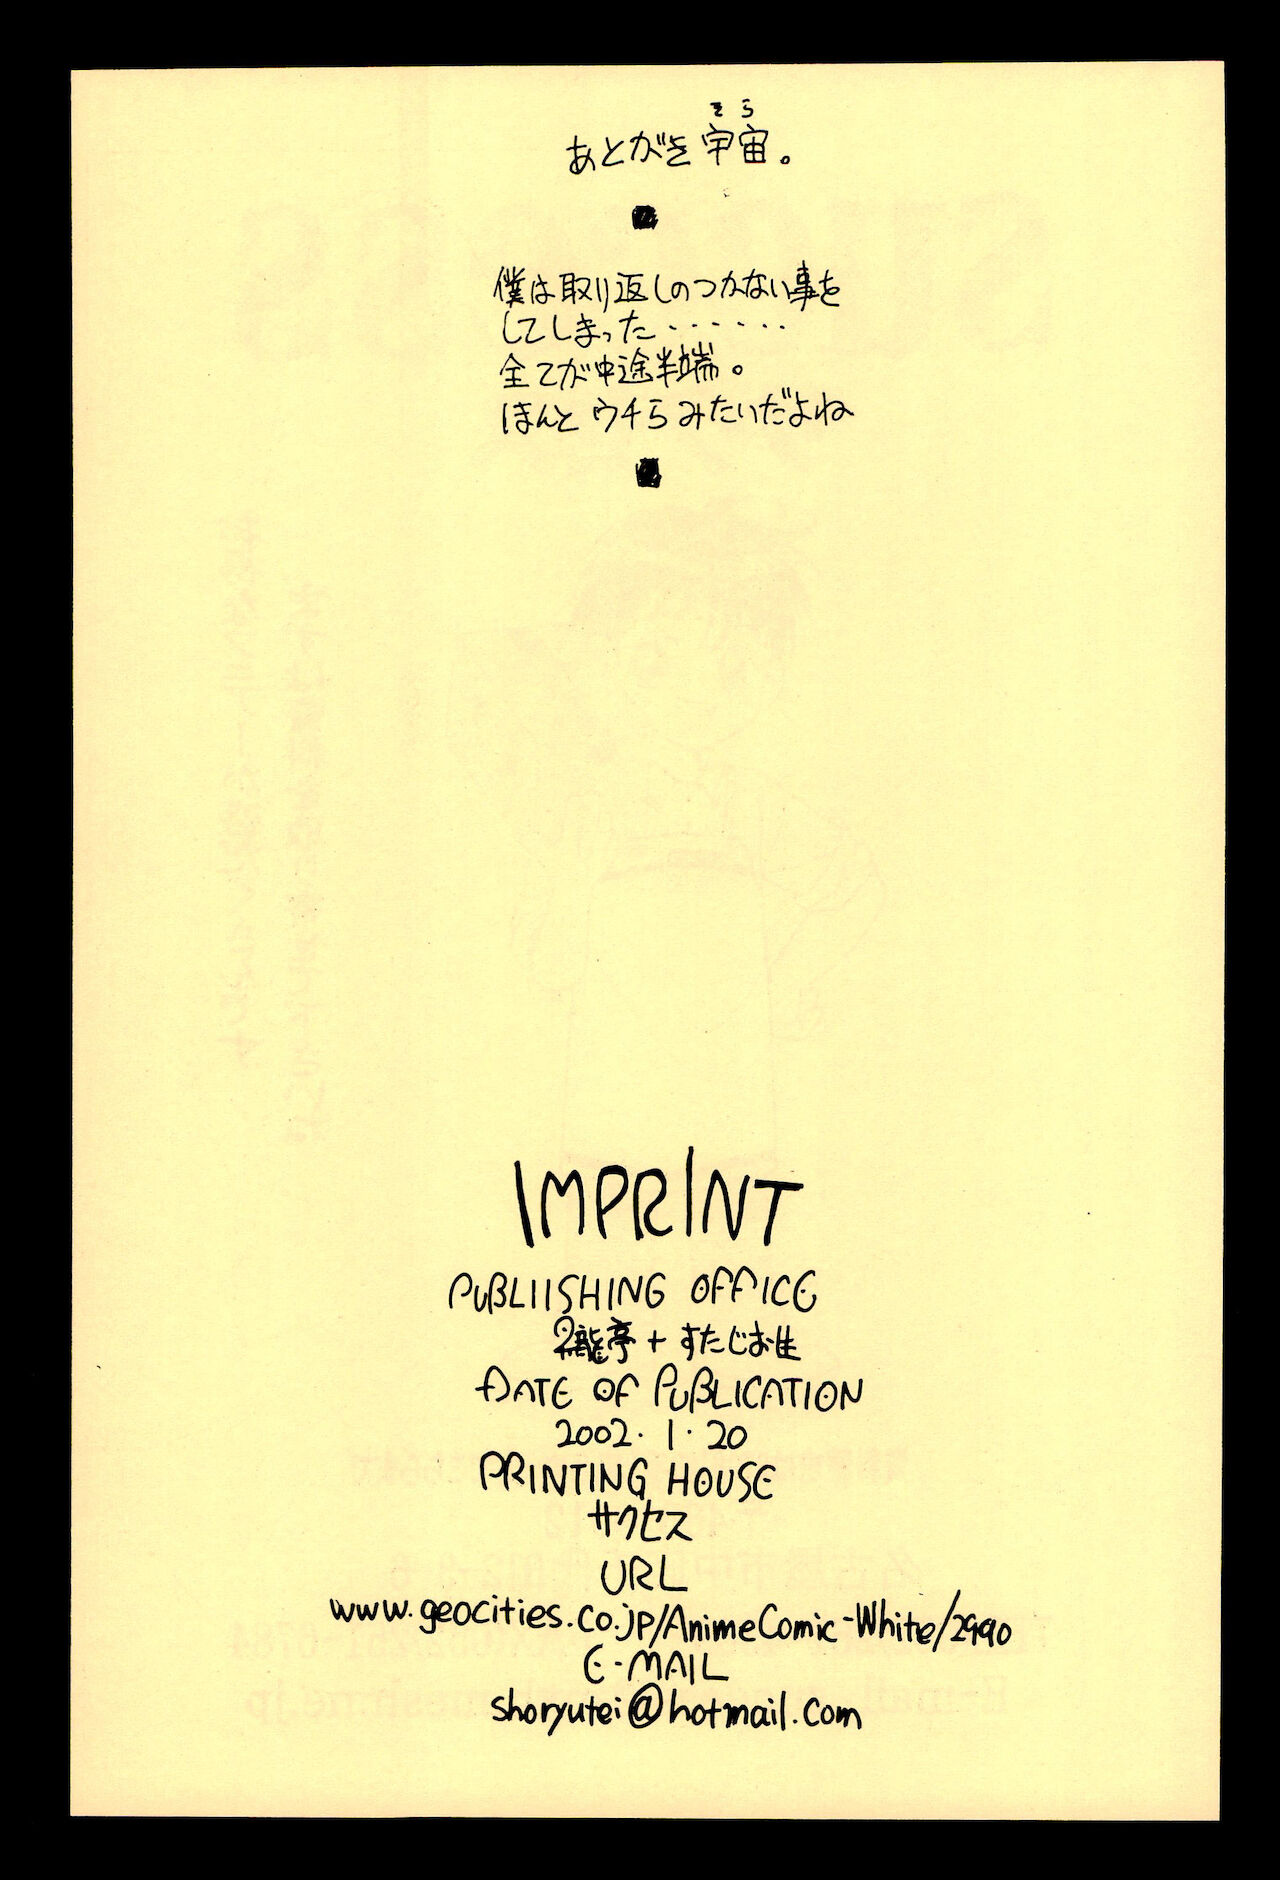 そら
あとがき宇宙。
■
僕は取り返しのつかない事を
してしまった・・・・・・
全てが中途半端。
ほんとウチらみたいだよね
■
IMPRINT
PUBLIISHING OFFICE
龍亭+すたじお生
DATE OF PUBLICATION
2002・1・20
PRINTING HOUSE
サクセス
URL
www.geocities.co.jp/AnimeComic-White/2990
E-MAIL
shoryutei@hotmail.com